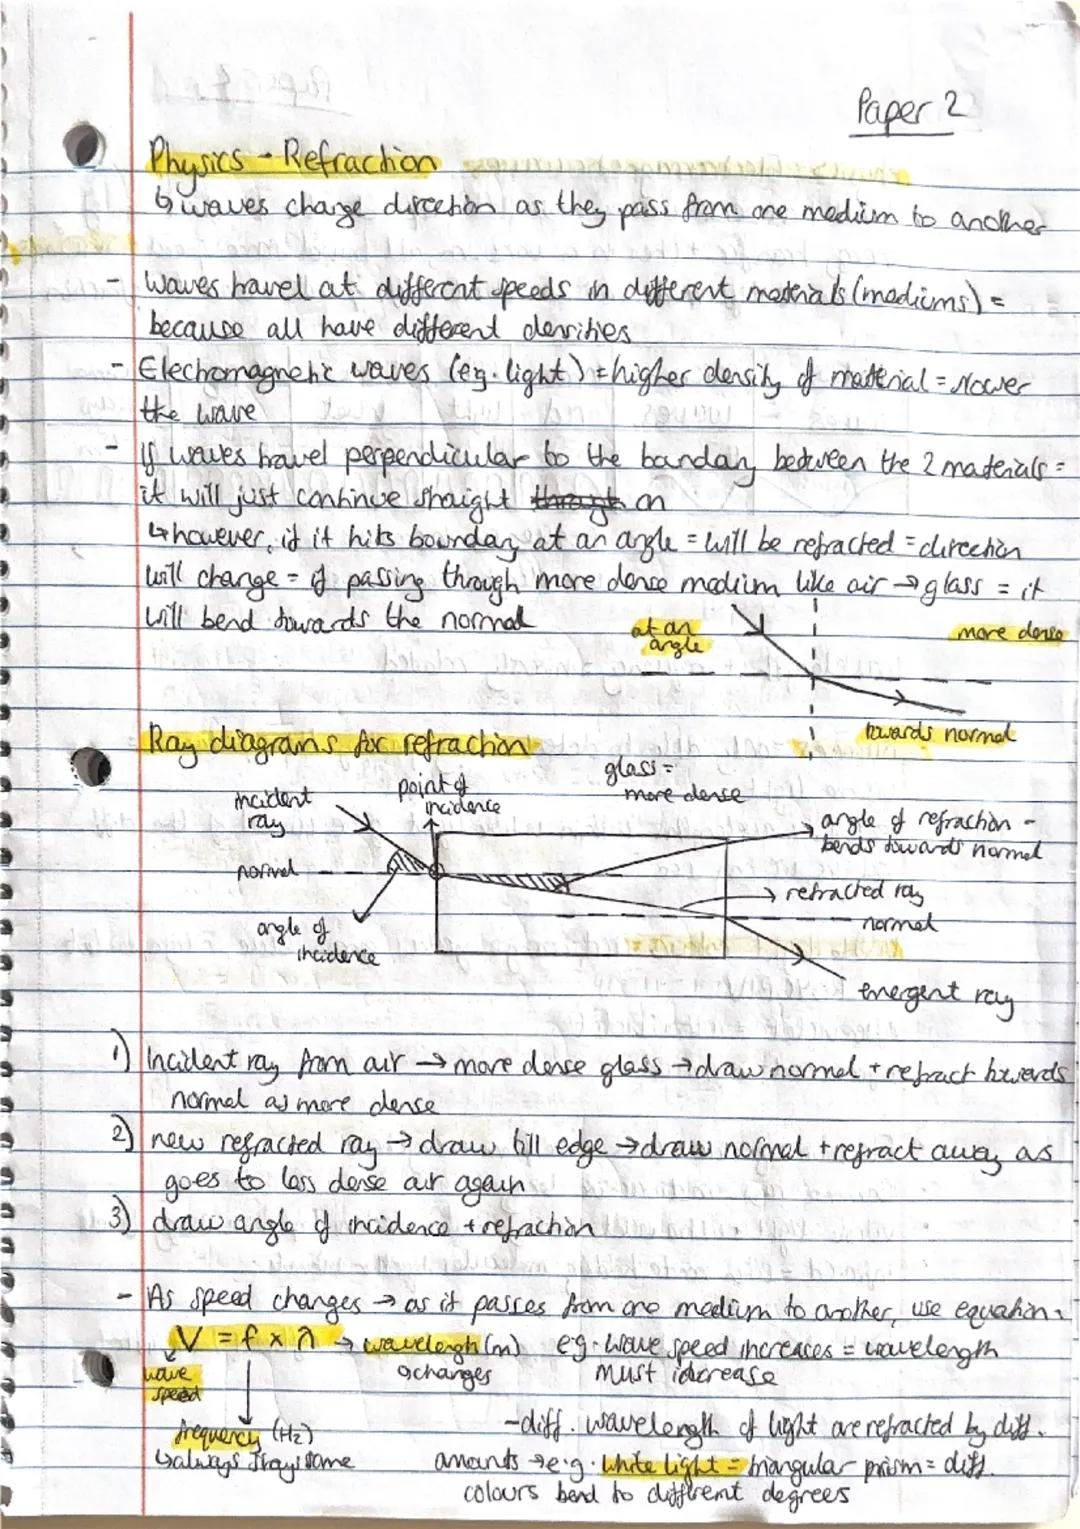 Paper 2
Physics - Refraction
↳ waves change direction as they pass from one medium to another
- Waves travel at different speeds in different materials (mediums) =
because all have different densities
- Electromagnetic waves (eg. light) = higher density of material = slower
the wave
- If waves travel perpendicular to the boundary between the 2 materials =
it will just continue straight through on
↳ however, if it hits boundary at an angle = will be refracted = direction
will change = if passing through more dense medium like air → glass = it
will bend towards the normal
at an
angle
more dense
towards normal
Ray diagrams for refraction
glass =
more dense
incident
ray
point of
incidence
angle of refraction -
bends towards normal
normal
refracted ray
normal
angle of
incidence
emergent ray
1) Incident ray from air → more dense glass → draw normal + refract towards
normal as more dense
2) new refracted ray → draw till edge → draw normal + refract away as
goes to less dense air again
3) draw angle of incidence + refraction
- As speed changes → as it passes from one medium to another, use equation:
V = f x λ → wavelength (m) eg. wave speed increases = wavelength
wave
speed
↳ changes
must increase
frequency (Hz)
↳ always stays same
- diff. wavelength of light are refracted by diff.
amounts → e.g. white light = triangular prism = diff.
colours bend to different degrees